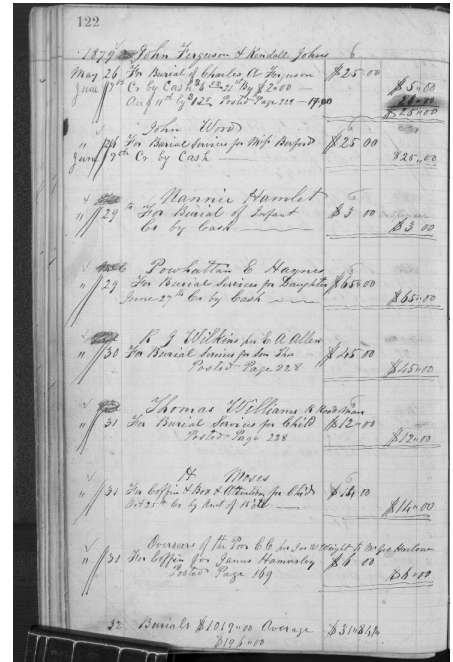 122
1879 John Ferguson & Kendall Johns
May 26 For Burial of Charles A Ferguson $25.00
June 7th Cr by Cash $5.00 21st By $2.00 $5.00
Aug 11th by Posted Page 222 17.00 20.00
$25.00
John Word
" 26 For Burial Services for Miss $25.00
June 7th Cr by Cash $25.00
Nannie Hamlet
" 29 For Burial of Infant $3 00
Cr by Cash $3 00
Powhattan E Haynes
" 29 For Burial Services for Daughter $65.00
June 27th Cr by Cash $65.00
R J Wilkins per E A Allen
" 30 For Burial Services for Son Thos $45 00
Posted Page 228 $45.00
Thomas Williams
" 31 For Burial Services for Child $12.00
Posted Page 228 $12.00
H Moses
" 31 For Coffin & Box & Attention for Child $14 00
Oct 25th Cr by $14.00
Overseers of the Poor C C per Jas W Wright to Mr Geo Harlow
" 31 For Coffin for James Hamersley $6 00
Posted Page 169 $6.00
32 Burials $1019.00 Average $31.84
$196.00